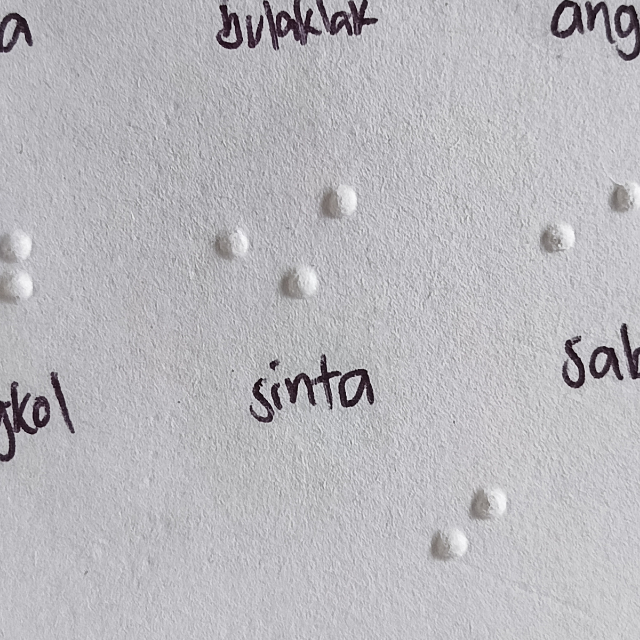 a bulaklak ang
gkol sinta sab